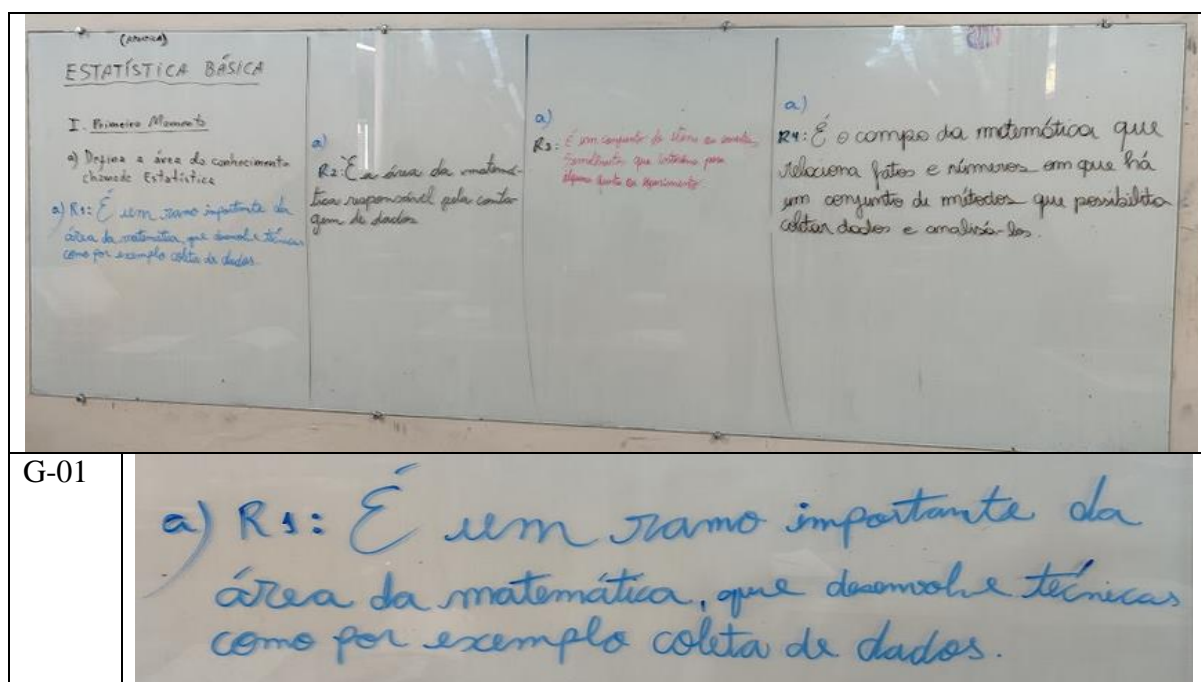 ESTATÍSTICA BÁSICA
I. Primeiro Momento
a) Defina a área do conhecimento
chamada Estatística
a) R1: É um ramo importante da
área da matemática, que desenvolve técnicas
como por exemplo coleta de dados.
a)
R2: É a área da matemá-
tica responsável pela conta-
gem de dados
a)
R3: É um conjunto de
que
alguma
a)
R4: É o campo da matemática que
relaciona fatos e números em que há
um conjunto de métodos que possibilita
coletar dados e analisá-los.
G-01
a) R1: É um ramo importante da
área da matemática, que desenvolve técnicas
como por exemplo coleta de dados.